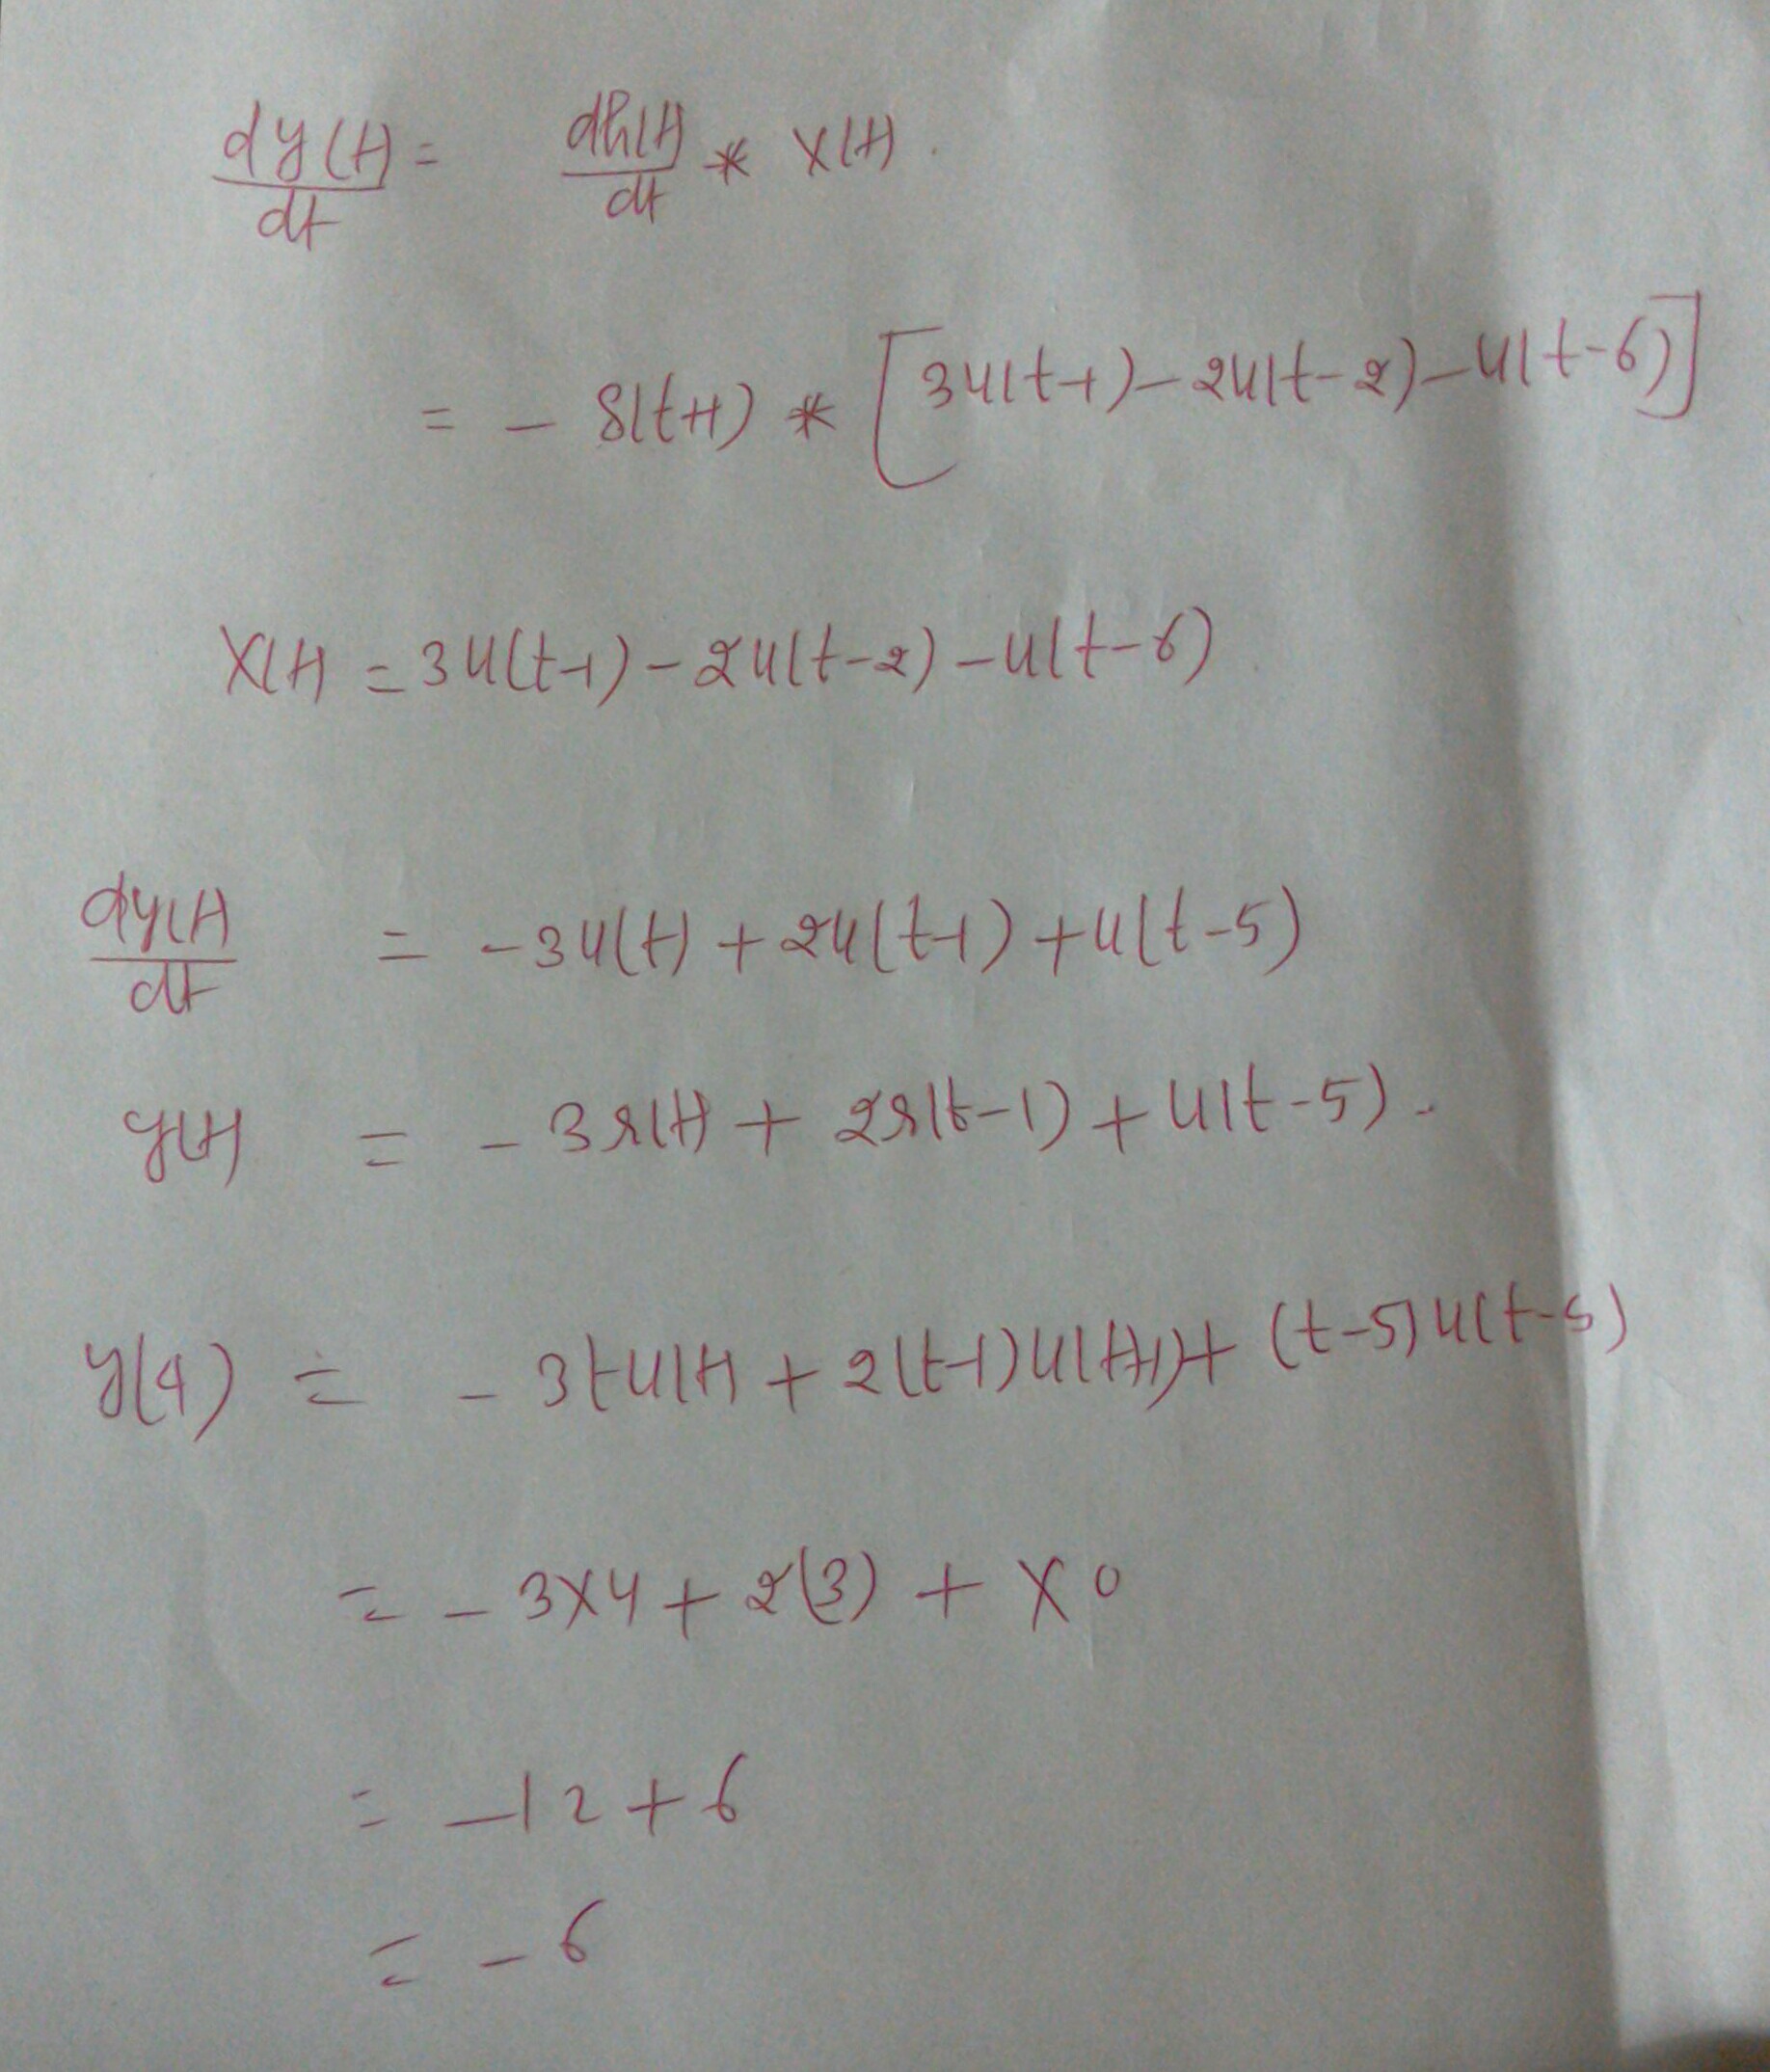 dy(t)/dt = dh(t)/dt * x(t).
= - δ(t+1) * [3u(t-1) - 2u(t-2) - u(t-6)]
x(t) = 3u(t-1) - 2u(t-2) - u(t-6)
dy(t)/dt = -3u(t) + 2u(t-1) + u(t-5)
y(t) = - 3r(t) + 2r(t-1) + u(t-5).
y(4) = - 3tu(t) + 2(t-1)u(t-1) + (t-5)u(t-5)
= - 3x4 + 2(3) + x0
= -12+6
= -6